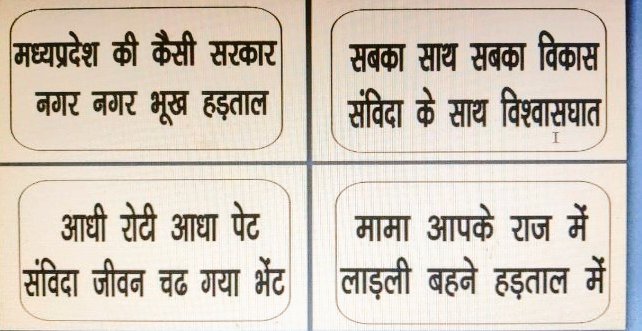 मध्यप्रदेश की कैसी सरकार
नगर नगर भूख हड़ताल
सबका साथ सबका विकास
संविदा के साथ विश्वासघात
आधी रोटी आधा पेट
संविदा जीवन चढ गया भेंट
मामा आपके राज में
लाड़ली बहने हड़ताल में